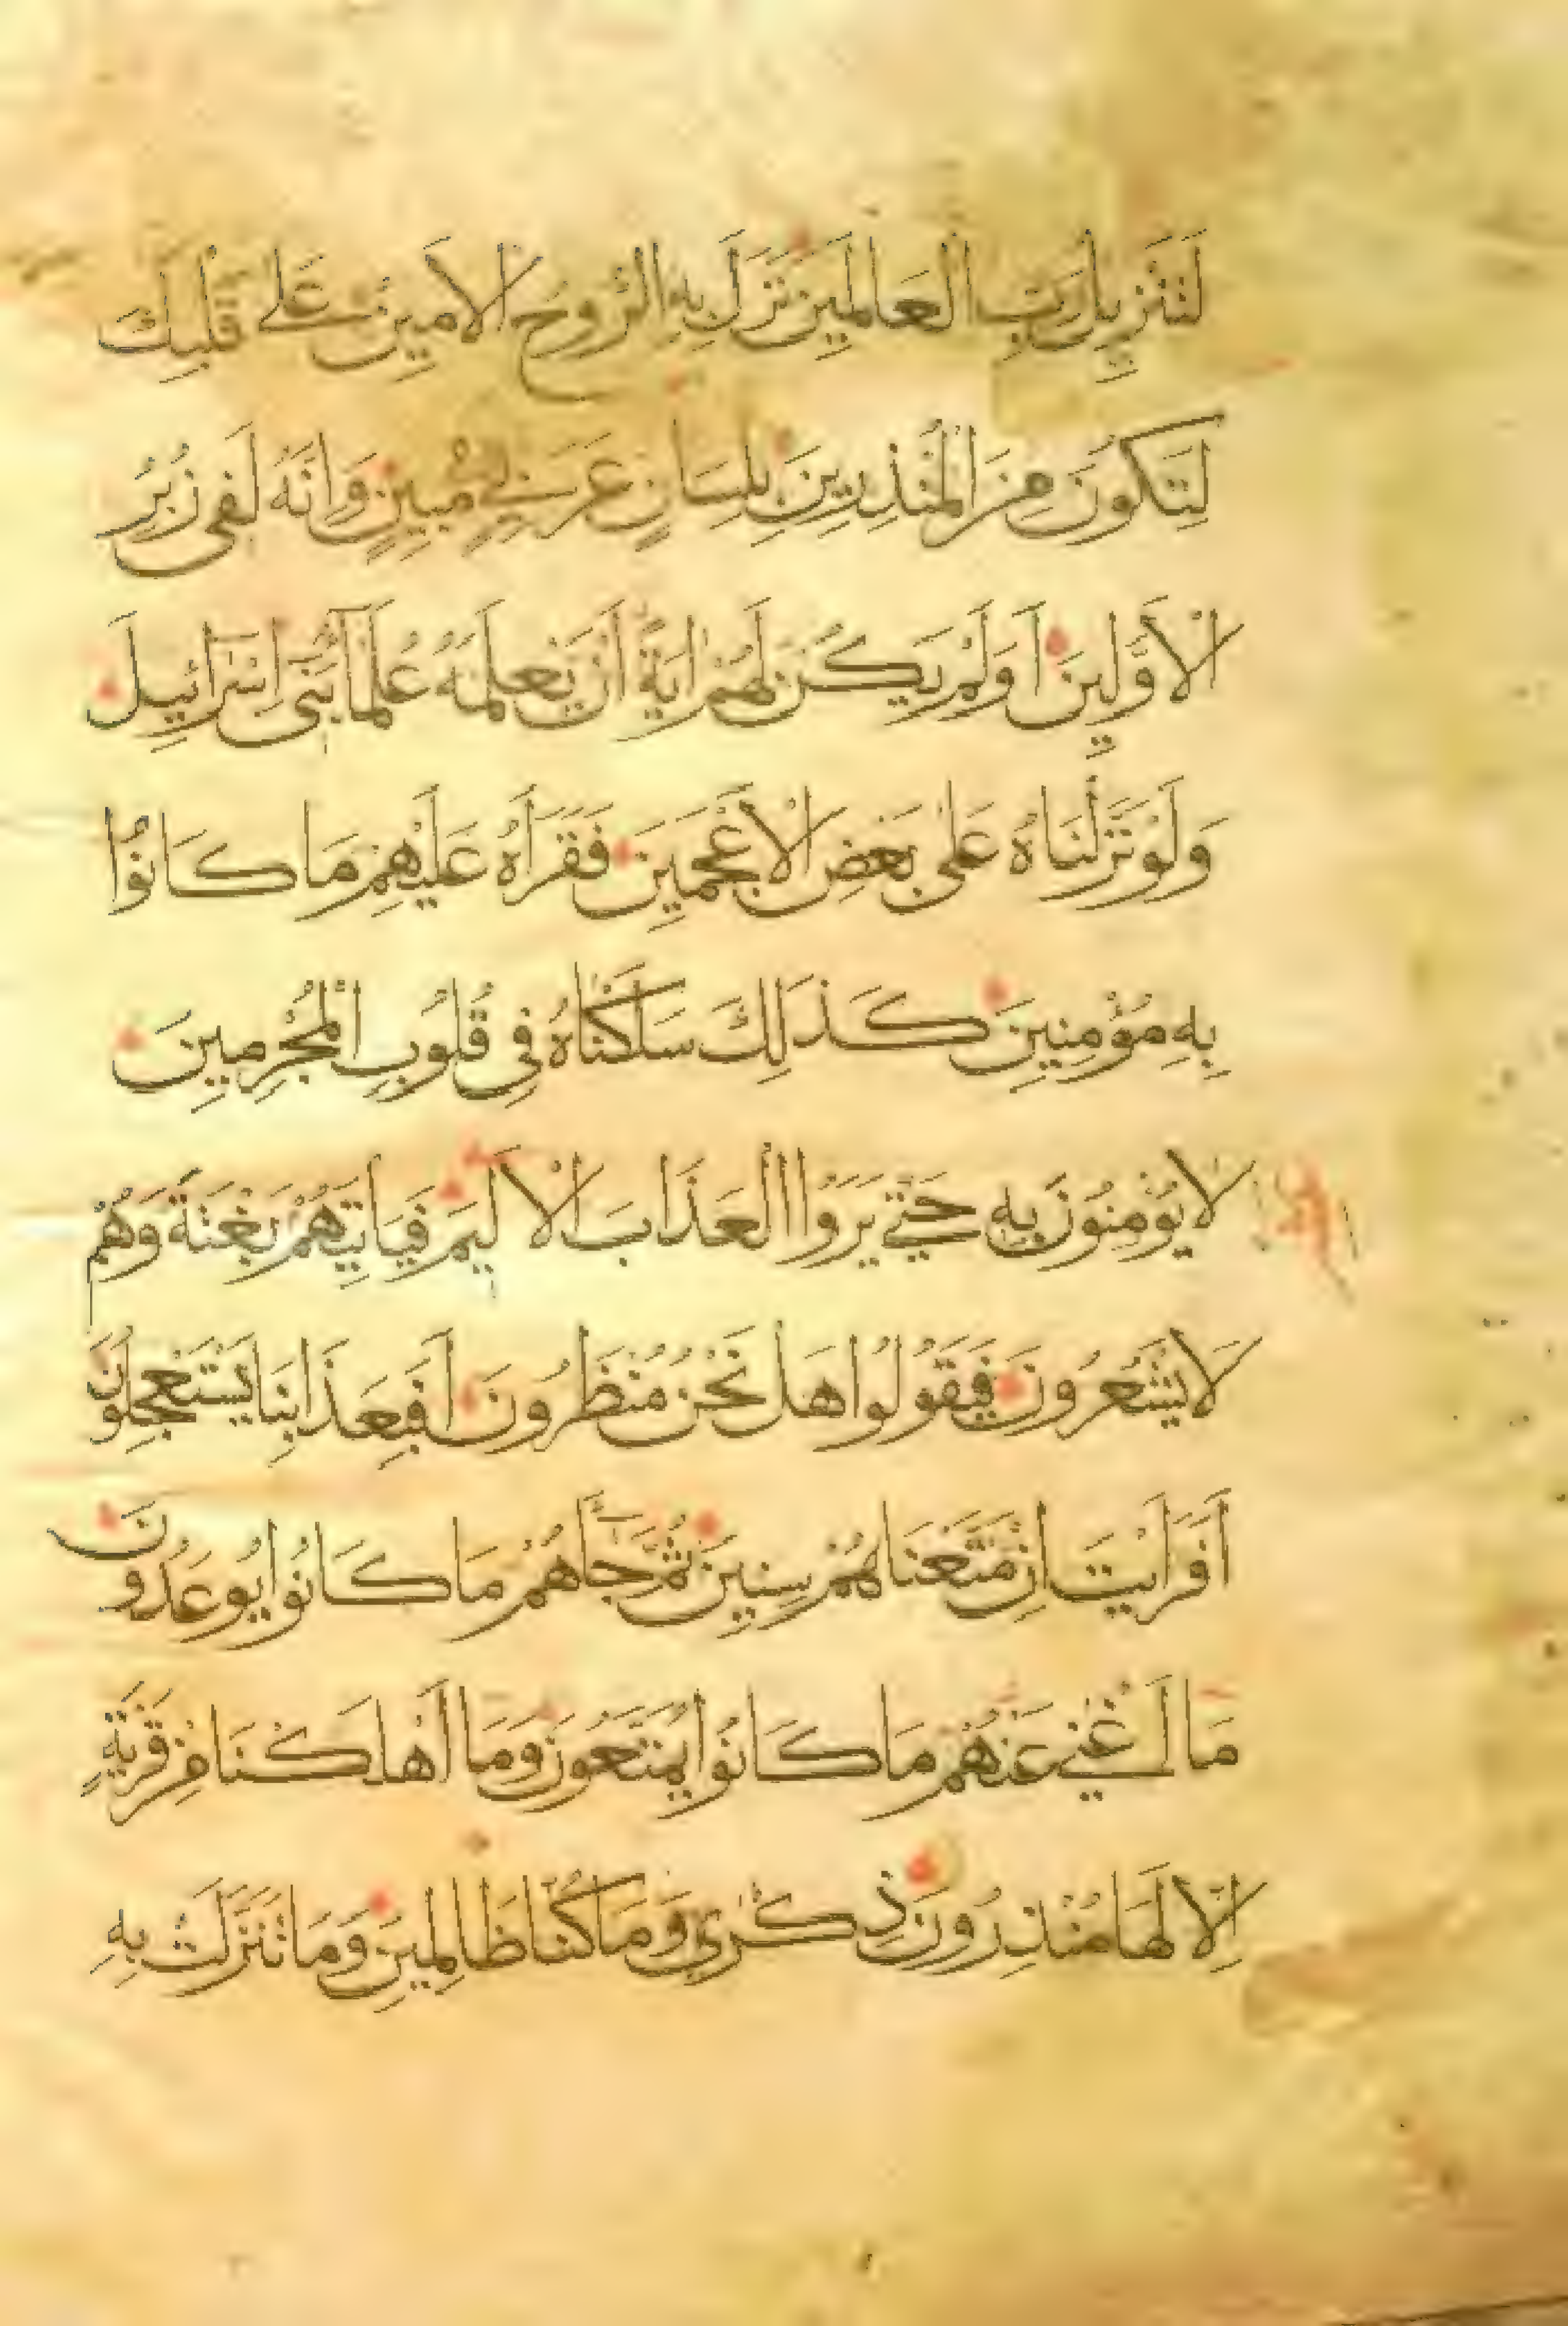 لَتَنْزِيلُ رَبِّ الْعَالَمِينَ نَزَلَ بِهِ الرُّوحُ الْأَمِينُ عَلَى قَلْبِكَ
لِتَكُونَ مِنَ الْمُنْذِرِينَ بِلِسَانٍ عَرَبِيٍّ مُبِينٍ وَإِنَّهُ لَفِي زُبُرِ
الْأَوَّلِينَ أَوَلَمْ يَكُنْ لَهُمْ آيَةً أَنْ يَعْلَمَهُ عُلَمَاءُ بَنِي إِسْرَائِيلَ
وَلَوْ نَزَّلْنَاهُ عَلَى بَعْضِ الْأَعْجَمِينَ فَقَرَأَهُ عَلَيْهِمْ مَا كَانُوا
بِهِ مُؤْمِنِينَ كَذَلِكَ سَلَكْنَاهُ فِي قُلُوبِ الْمُجْرِمِينَ
لَا يُؤْمِنُونَ بِهِ حَتَّى يَرَوُا الْعَذَابَ الْأَلِيمَ فَيَأْتِيَهُمْ بَغْتَةً وَهُمْ
لَا يَشْعُرُونَ فَيَقُولُوا هَلْ نَحْنُ مُنْظَرُونَ أَفَبِعَذَابِنَا يَسْتَعْجِلُونَ
أَفَرَأَيْتَ إِنْ مَتَّعْنَاهُمْ سِنِينَ ثُمَّ جَاءَهُمْ مَا كَانُوا يُوعَدُونَ
مَا أَغْنَى عَنْهُمْ مَا كَانُوا يُمَتَّعُونَ وَمَا أَهْلَكْنَا مِنْ قَرْيَةٍ
إِلَّا لَهَا مُنْذِرُونَ ذِكْرَى وَمَا كُنَّا ظَالِمِينَ وَمَا تَنَزَّلَتْ بِهِ